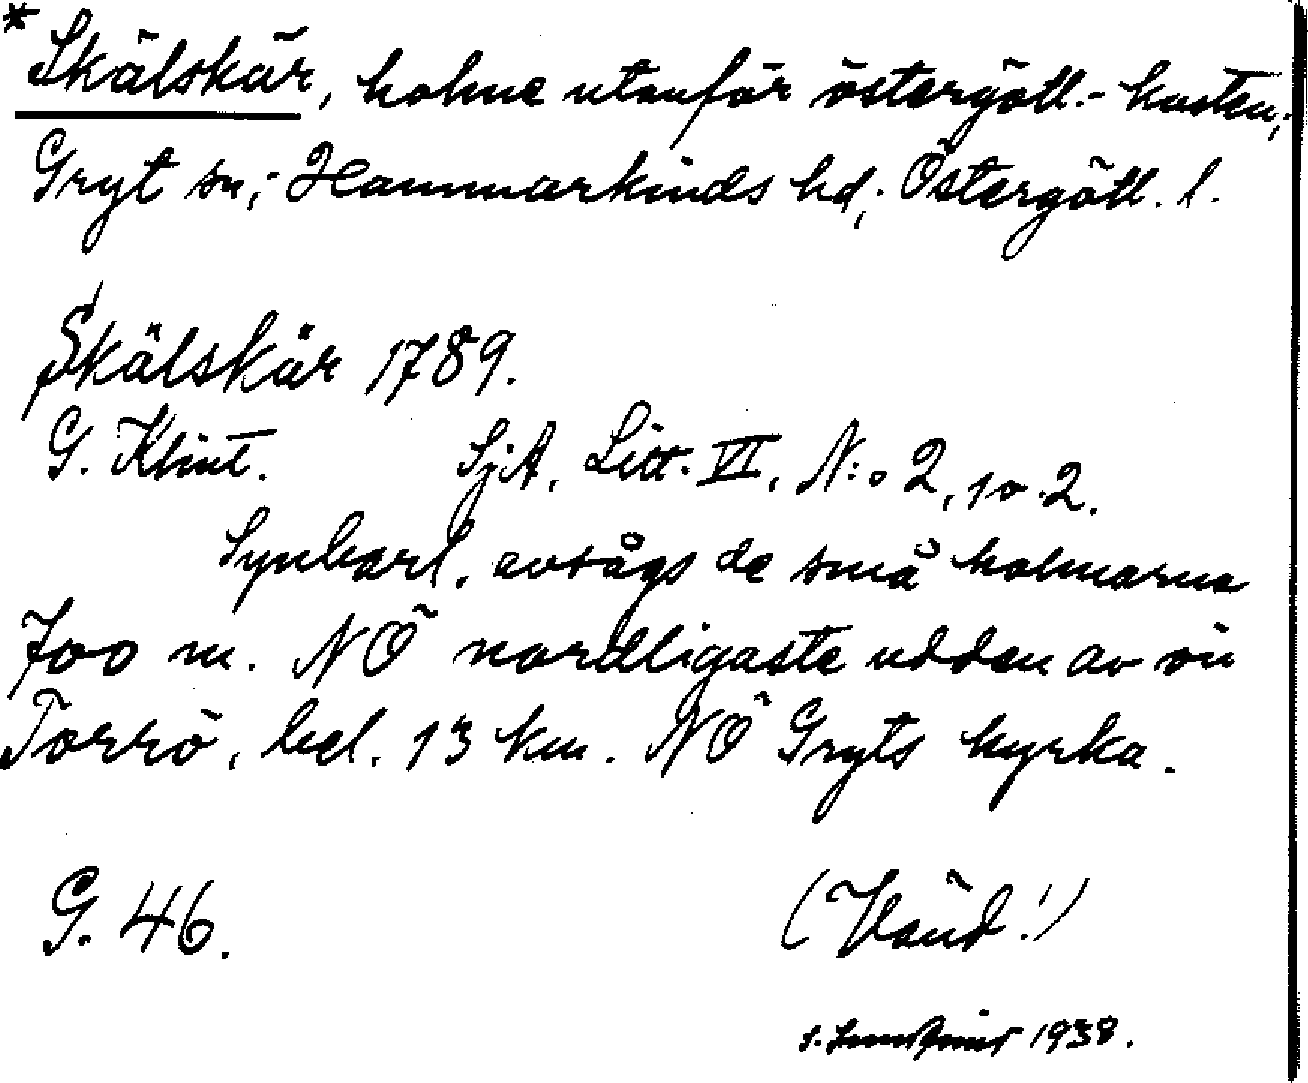 * Skälskär, holme utanför östergötl.- kusten;
Gryt sn; Hammarkinds hd; Östergötl. l.
Skälskär 1789.
G. Klint. SjA, Litt. VI, N:o 2, 10.2.
Synbarl. avsågs de små holmarna
700 m. NÖ nordligaste udden av ön
Torrö, bel. 13 km. NÖ Gryts kyrka.
G. 46.
(Vänd!)
1938.